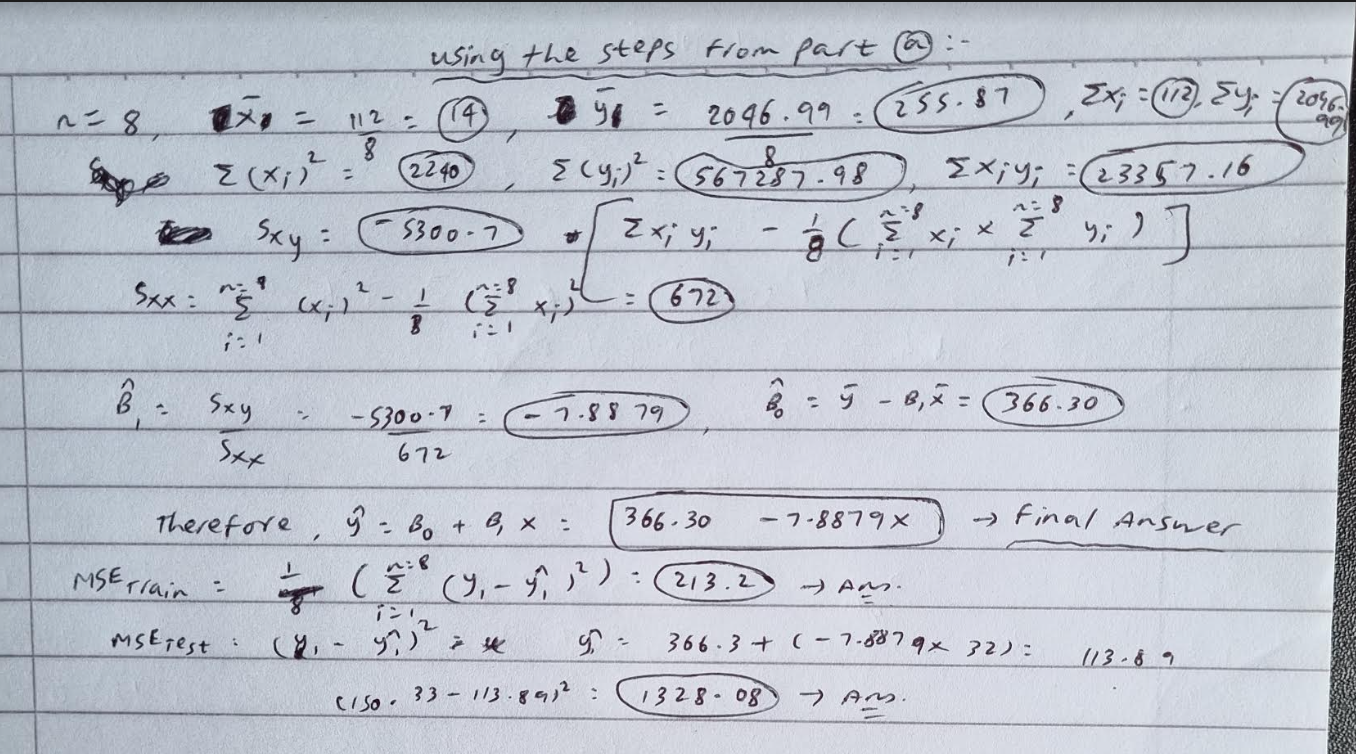 using the steps from part (a) :-
n = 8, x̄ = 112/8 = 14, ȳ = 2046.99/8 = 255.87, Σxi = 112, Σyi = 2046.99
Σ(xi)² = 2240, Σ(yi)² = 567287.98, Σxiyi = 23357.16
Sxy = -5300.7 [Σxi yi - 1/8 (Σ(i=1, n=8) xi × Σ(i=1, n=8) yi)]
Sxx = Σ(i=1, n=8) (xi)² - 1/8 (Σ(i=1, n=8) xi)² = 672
B̂₁ = Sxy/Sxx = -5300.7/672 = -7.8879, B̂₀ = ȳ - B₁x̄ = 366.30
Therefore, ŷ = B₀ + B₁ x = 366.30 - 7.8879x → Final Answer
MSE Train = 1/8 (Σ(i=1, n=8) (yi - ŷi)²) = 213.2 → Ans.
MSE Test = (yi - ŷi)² = ŷi = 366.3 + (-7.8879 × 32) = 113.89
(150.33 - 113.89)² = 1328.08 → Ans.